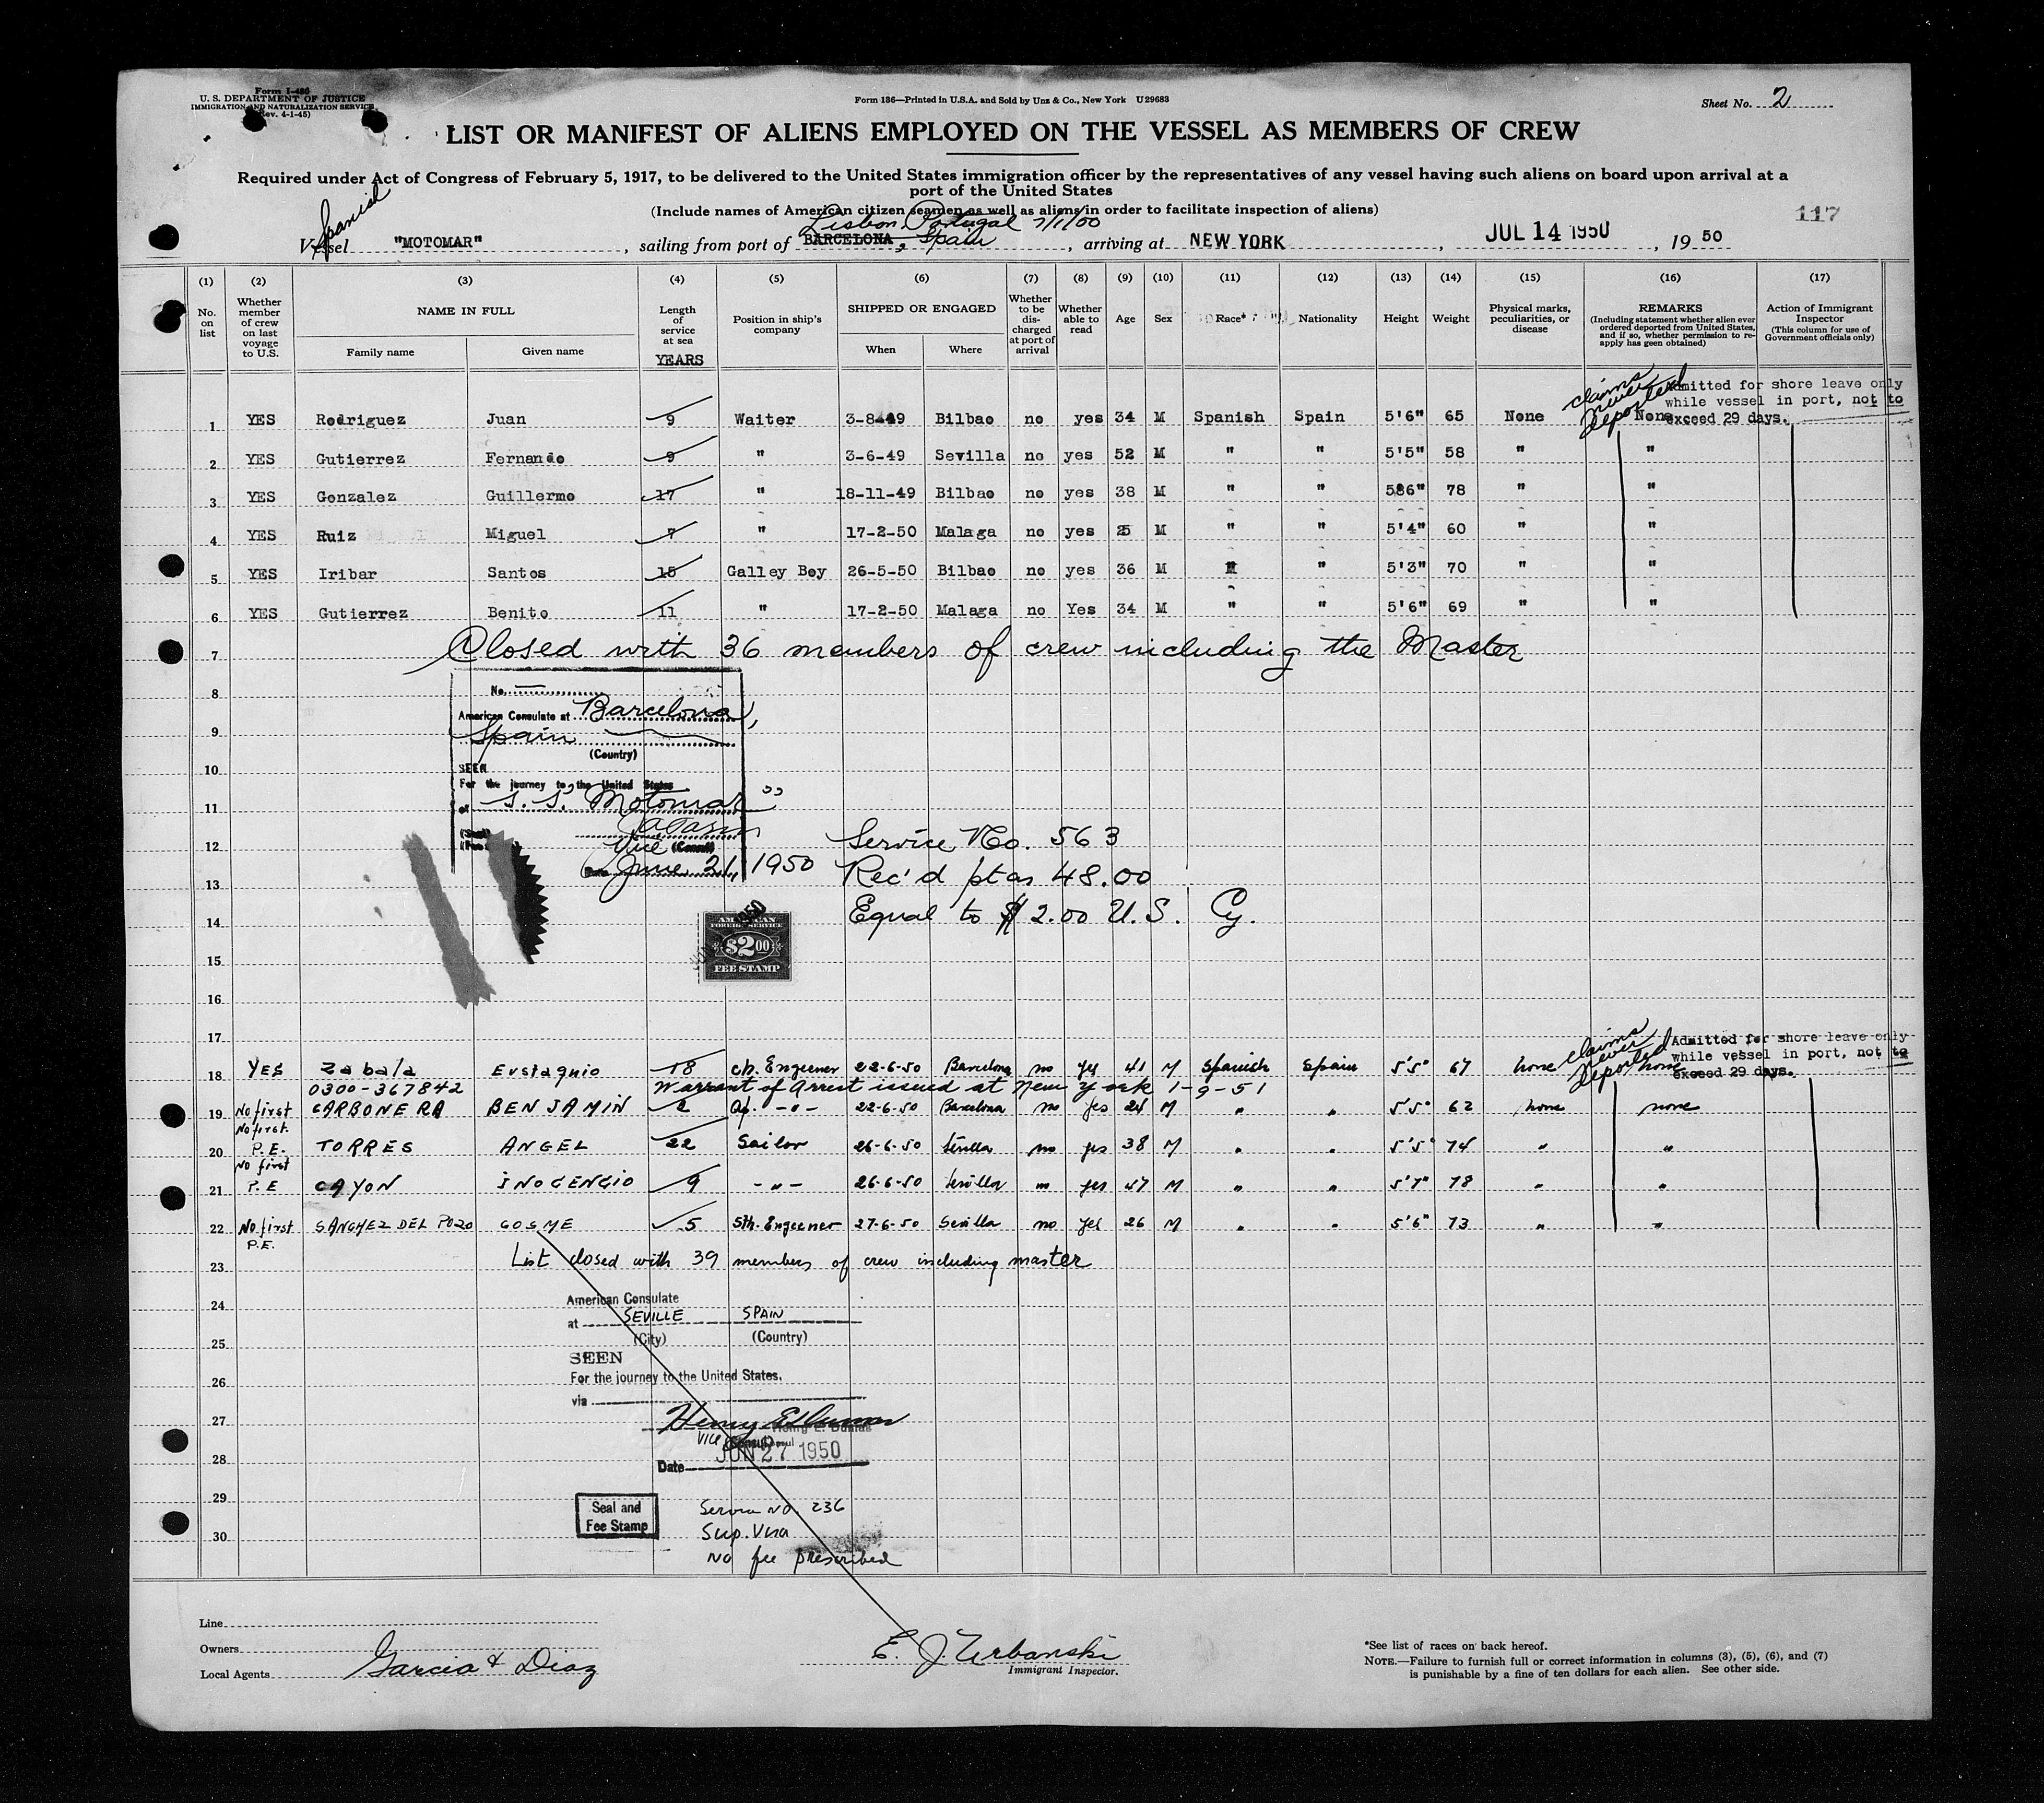 Form I-486
U. S. DEPARTMENT OF JUSTICE
IMMIGRATION AND NATURALIZATION SERVICE
(Rev. 4-1-45)
Form 136—Printed in U.S.A. and Sold by Unz & Co., New York U29683
Sheet No. 2
LIST OR MANIFEST OF ALIENS EMPLOYED ON THE VESSEL AS MEMBERS OF CREW
Required under Act of Congress of February 5, 1917, to be delivered to the United States immigration officer by the representatives of any vessel having such aliens on board upon arrival at a
port of the United States
(Include names of American citizen seamen as well as aliens in order to facilitate inspection of aliens)
117
Spanish
Lisbon, Portugal
Vessel "MOTOMAR", sailing from port of BARCELONA, Spain, arriving at NEW YORK, JUL 14 1950, 19 50
(1) (2) (3) (4) (5) (6) (7) (8) (9) (10) (11) (12) (13) (14) (15) (16) (17)
No. on list
Whether member of crew on last voyage to U.S.
NAME IN FULL
Family name Given name
Length of service at sea YEARS
Position in ship's company
SHIPPED OR ENGAGED
When Where
Whether to be discharged at port of arrival
Whether able to read
Age
Sex
Race*
Nationality
Height
Weight
Physical marks, peculiarities, or disease
REMARKS
(Including statement whether alien ever ordered deported from United States, and if so, whether permission to re-apply has geen obtained)
Action of Immigrant Inspector
(This column for use of Government officials only)
claims never deported
Admitted for shore leave only
while vessel in port, not to
exceed 29 days.
1 YES Rodriguez Juan 9 Waiter 3-8-49 Bilbao no yes 34 M Spanish Spain 5'6" 65 None None
2 YES Gutierrez Fernando 9 " 3-6-49 Sevilla no yes 52 M " " 5'5" 58 " "
3 YES Gonzalez Guillermo 17 " 18-11-49 Bilbao no yes 38 M " " 5'6" 78 " "
4 YES Ruiz Miguel 7 " 17-2-50 Malaga no yes 25 M " " 5'4" 60 " "
5 YES Iribar Santos 15 Galley Boy 26-5-50 Bilbao no yes 36 M " " 5'3" 70 " "
6 YES Gutierrez Benito 11 " 17-2-50 Malaga no Yes 34 M " " 5'6" 69 " "
7 Closed with 36 members of crew including the Master
8
No.
American Consulate at Barcelona,
9
Spain
(Country)
10
SEEN
For the journey to the United States
11
of S. S. Motomar
(Seal)
12
Vice (Consul)
Date June 21, 1950
Service No. 563
13
Rec'd ptas 48.00
14
Equal to $2.00 U.S. Cy.
AMERICAN
FOREIGN SERVICE
$2.00
FEE STAMP
15
16
17
claims never deported
Admitted for shore leave only
while vessel in port, not to
exceed 29 days.
18 YES Zabala Eustaquio 18 ch. Engeener 22-6-50 Barcelona no yes 41 M Spanish Spain 5'5" 67 none none
0300-367842 Warrant of Arrest issued at New York 1-9-51
19 No first CARBONERA BENJAMIN 2 22-6-50 Barcelona no yes 24 M " " 5'5" 62 none none
20 No first. P.E. TORRES ANGEL 22 Sailor 26-6-50 Sevilla no yes 38 M " " 5'5" 74 " "
21 No first P.E CAYON INOCENCIO 9 -"- 26-6-50 Sevilla no yes 47 M " " 5'7" 78 " "
22 No first P.E. SANCHEZ DEL POZO COSME 5 5th. Engeener 27-6-50 Sevilla no yes 26 M " " 5'6" 73 " "
23 List closed with 39 members of crew including master
24
American Consulate
at SEVILLE SPAIN
25
(City) (Country)
SEEN
26
For the journey to the United States.
via
27
Henry E.
VICE Consul
28
Date JUN 27 1950
29
Seal and
Fee Stamp
Service No. 236
30
Sup. Visa
No fee prescribed
Line
Owners
Local Agents Garcia & Diaz
E. J. Urbanski
Immigrant Inspector.
*See list of races on back hereof.
NOTE.—Failure to furnish full or correct information in columns (3), (5), (6), and (7)
is punishable by a fine of ten dollars for each alien. See other side.